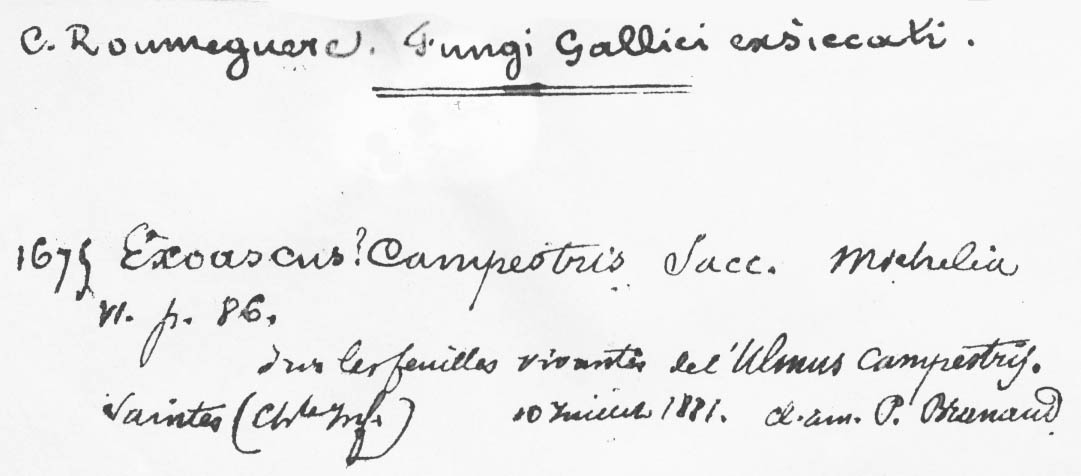 C. Roumeguere. Fungi Gallici exsiccati.
1675 Exoascus? Campestris Sacc. Michelia
VI. p. 86.
Sur les feuilles vivantes de l'Ulmus campestris.
Saintes (Chte Infre) 10 Juillet 1881. cl. am. P. Brunaud